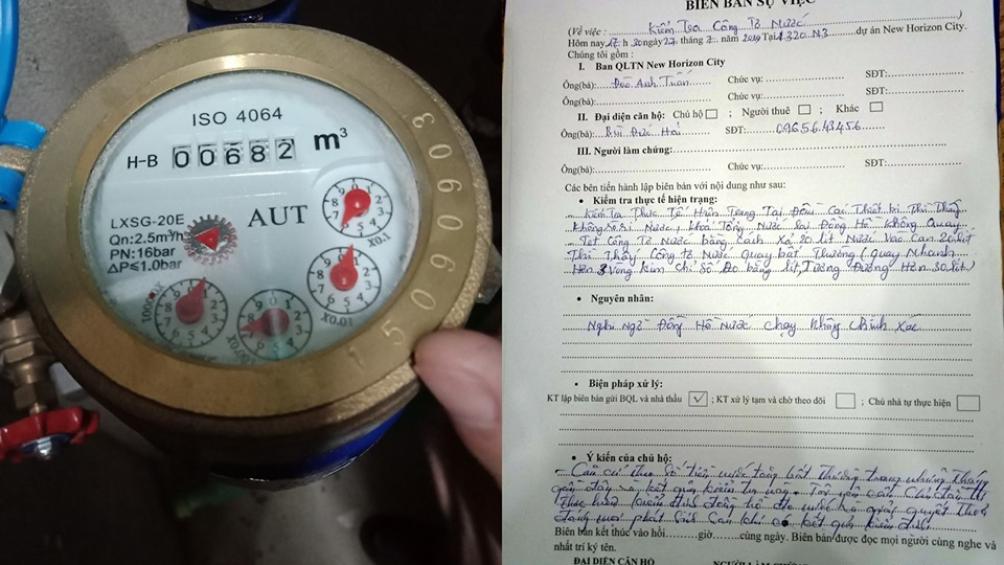 ISO 4064
H-B 00682 m³
LXSG-20E
Qn:2.5m³/h
PN:16bar
ΔP≤1.0bar
AUT
X0.1
X0.01
X0.001
X0.0001
15090903
BIÊN BẢN SỰ VIỆC
(Về việc: Kiểm Tra Công Tơ Nước)
Hôm nay 17 h 30 ngày 27 tháng 7 năm 2019 Tại dự án New Horizon City.
Chúng tôi gồm :
I. Ban QLTN New Horizon City
Ông(bà): Đào Anh Tuấn Chức vụ: SĐT:
Ông(bà): Chức vụ: SĐT:
II. Đại diện căn hộ: Chủ hộ ; Người thuê ; Khác
Ông(bà): Bùi Đức Hải SĐT:
III. Người làm chứng:
Ông(bà): Chức vụ: SĐT:
Các bên tiến hành lập biên bản với nội dung như sau:
• Kiểm tra thực tế hiện trạng:
- Kiểm Tra Thực Tế Hiện Trạng Tại Các Thiết bị Thì Thấy
Không Rò Rỉ Nước, Khoá Tổng Nước Đồng Hồ Không Quay
- Test Công Tơ Nước bằng Cách Xả 20 lít Nước Vào Can 20 lít
Thì Thấy Công tơ Nước quay bất Thường (quay Nhanh
Hơn 3 Vòng kim Chỉ Số Đo bằng lít, Tương Đương Hơn 30 lít)
• Nguyên nhân:
Nghi Ngờ Đồng Hồ Nước chạy Không Chính Xác
• Biện pháp xử lý:
KT lập biên bản gửi BQL và nhà thầu ✓ ; KT xử lý tạm và chờ theo dõi ; Chủ nhà tự thực hiện
• Ý kiến của chủ hộ:
- Căn cứ theo số tiền nước tăng bất thường trong những tháng
gần đây và kết quả kiểm tra này. Tôi yêu cầu Chủ đầu tư
thực hiện kiểm định đồng hồ đo nước và giải quyết
phát sinh sau khi có kết quả kiểm định
Biên bản kết thúc vào hồi......giờ......cùng ngày. Biên bản được đọc mọi người cùng nghe và
nhất trí ký tên.
ĐẠI DIỆN CĂN HỘ